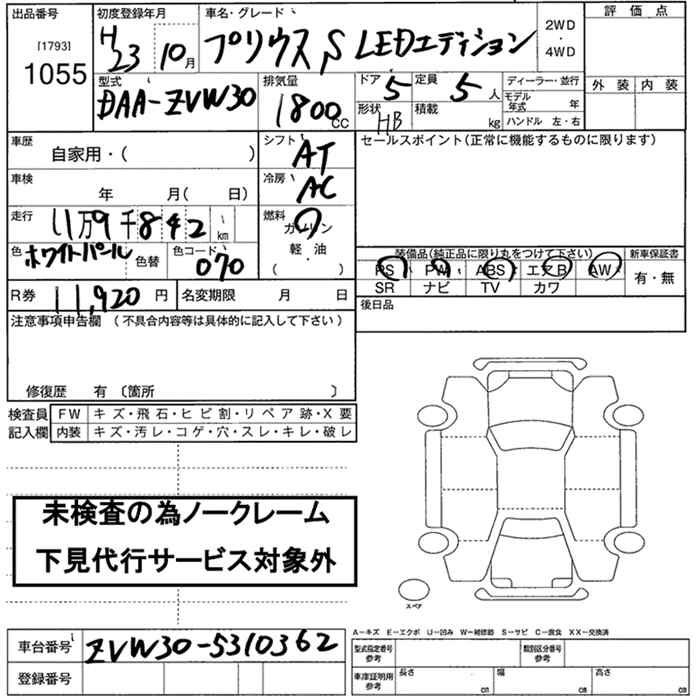 出品番号
[1793]
1055
初度登録年月
H23 10月
車名・グレード
プリウス S LEDエディション
2WD
・
4WD
評価点
外装 内装
型式
DAA-ZVW30
排気量
1800cc
ドア 5
定員 5人
形状 HB
積載 kg
ディーラー・並行
モデル年式 年
ハンドル 左・右
車歴
自家用・( )
シフト AT
セールスポイント(正常に機能するものに限ります)
車検
年 月( 日)
冷房 AC
走行
11万9千842km
燃料
ガソリン
軽・油
( )
色
ホワイトパール
色替
色コード
070
装備品(純正品に限り丸をつけて下さい)
新車保証書
PS PW ABS エアB AW
SR ナビ TV カワ
有・無
R券 11,920 円
名変期限 月 日
後日品
注意事項申告欄 (不具合内容等は具体的に記入して下さい)
修復歴 有〔箇所 〕
検査員記入欄
FW キズ・飛石・ヒビ割・リペア跡・X要
内装 キズ・汚レ・コゲ・穴・スレ・キレ・破レ
未検査の為ノークレーム
下見代行サービス対象外
スペア
車台番号 ZVW30-5310362
登録番号
A-キズ E-エクボ U-凹み W-補修跡 S-サビ C-腐食 XX-交換済
型式指定番号
参考
類別区分番号
参考
車庫証明用
参考
長さ cm
幅 cm
高さ cm